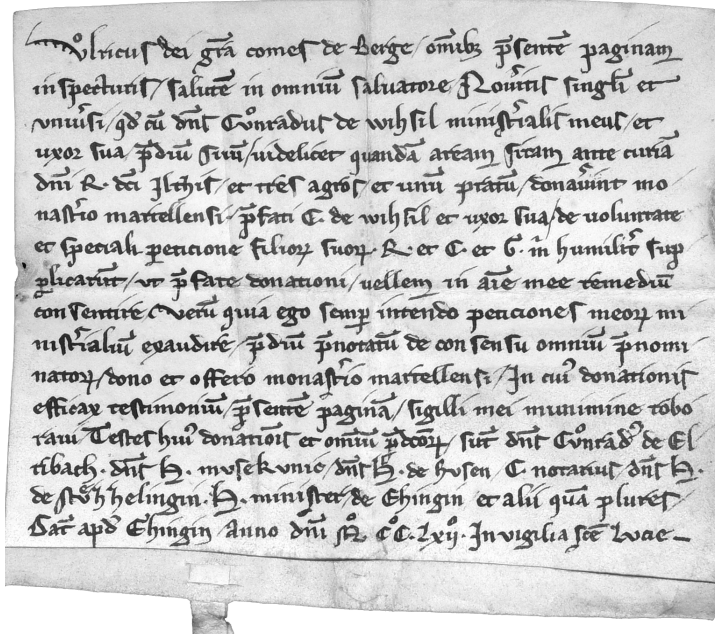 Vͦlricus dei gr̄a comes de Berge / om̄ibꝫ p̄sentē paginam
inspecturis / salutē in omniū saluatore / Nouītis singl̄i et
vniūsi / qd̄ cū dn̄s Cvͦnradus de wihsil minist̄ialis meus / et
uxor sua / p̄diū suū / uidelicet quandā aream sitam ante curiā
dn̄i R. dc̄i Ilthis / et tres agros / et unū pratū / donauērint mo
nast̄io martellensi . p̄fati C. de wihsil et uxor sua / de uoluntate
et speciali peticione filioꝝ suoꝝ . R. et C. et G. m̄ humilit̄ sup
plicarūt / vt p̄fate donationi / vellem in aīe mee remediū
consentire / Verū quia ego semp̄ intendo peticiones meoꝝ mi
nist̄ialiū exaudire / p̄diū p̄notatū de consensu omniū p̄nomi
natoꝝ / dono et offero monast̄io martellensi / In cuiꝰ donationis
efficax testimoniū / p̄sentē paginā / sigilli mei munimine robo
raui Testes huiꝰ donatiōis et omiū p̄dc̄oꝝ / sūt dn̄s Cvͦnradꝰ de El
ribach . dn̄s H. musekunic / dn̄s H. de husen C. notarius dn̄s H.
de helingin . H. minister de Ehingin et alii quā plures
Dat̄ apd̄ Ehingin Anno dn̄i Mͦ. CͦC. Lxiiͦ. In vigilia sc̄e Lucie